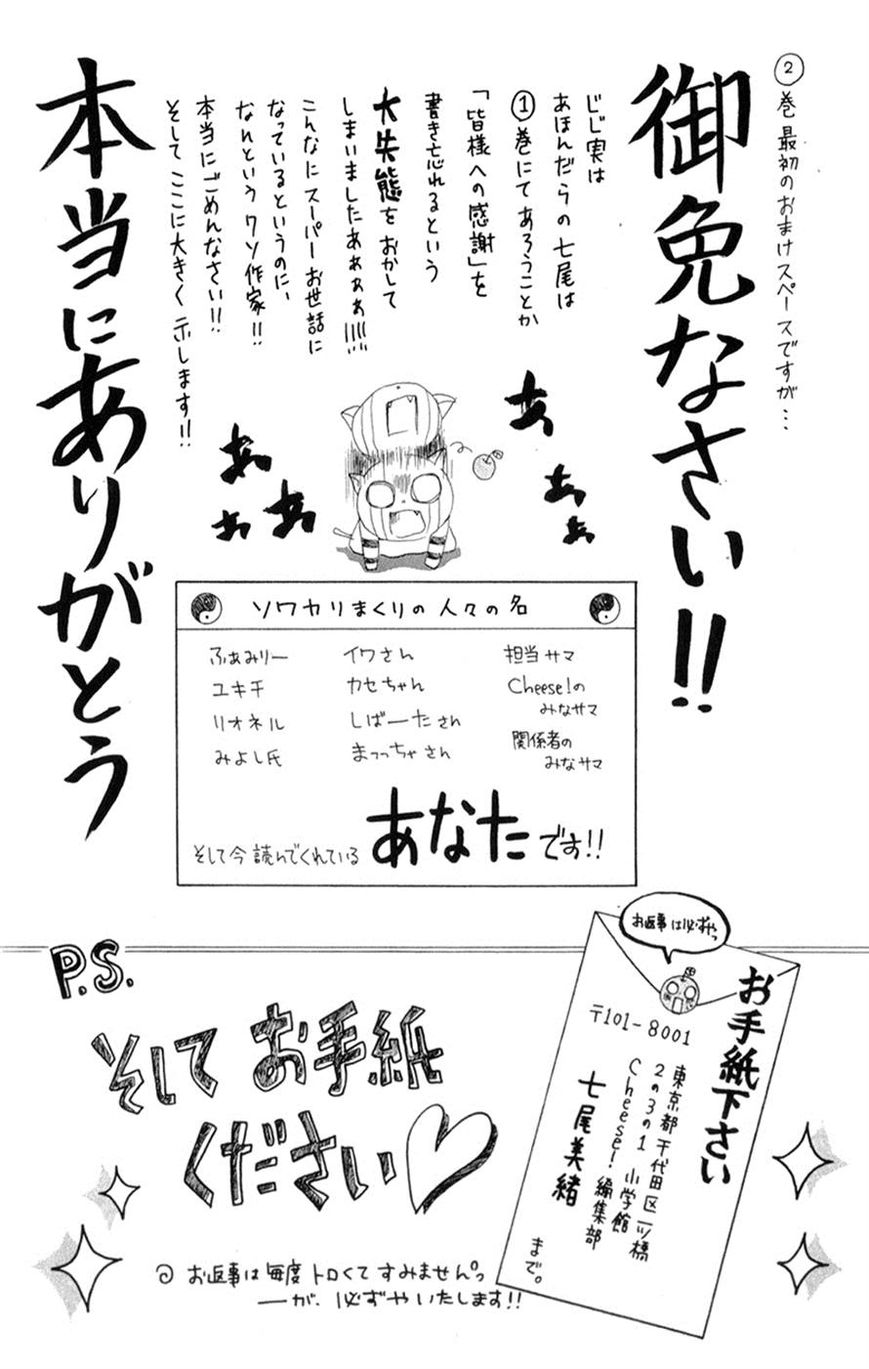 ②巻 最初のおまけスペースですが…
御免なさい!!
じじ実は
あほんだらの七尾は
①巻にてあろうことか
「皆様への感謝」を
書き忘れるという
大失態をおかして
しまいましたあぁぁぁ!!!!!
こんなにスーパーお世話に
なっているというのに、
なんというクソ作家!!
本当にごめんなさい!!
そしてここに大きく示します!!
本当にありがとう
あぁ
あぁ
あぁ
あぁ
ソワカリまくりの人々の名
ふぁみりー
ユキチ
リオネル
みよし氏
イワさん
カセちゃん
しばーたさん
まっっちゃさん
担当サマ
Cheese!の
みなサマ
関係者の
みなサマ
そして今読んでくれている あなたです!!
P.S.
そしてお手紙
ください♡
お返事は毎度トロくてすみません。っ
―が、必ずやいたします!!
お返事は必ずやっ
お手紙下さい
〒101-8001
東京都千代田区一ツ橋
2の3の1 小学館
Cheese!編集部
七尾美緒
まで。